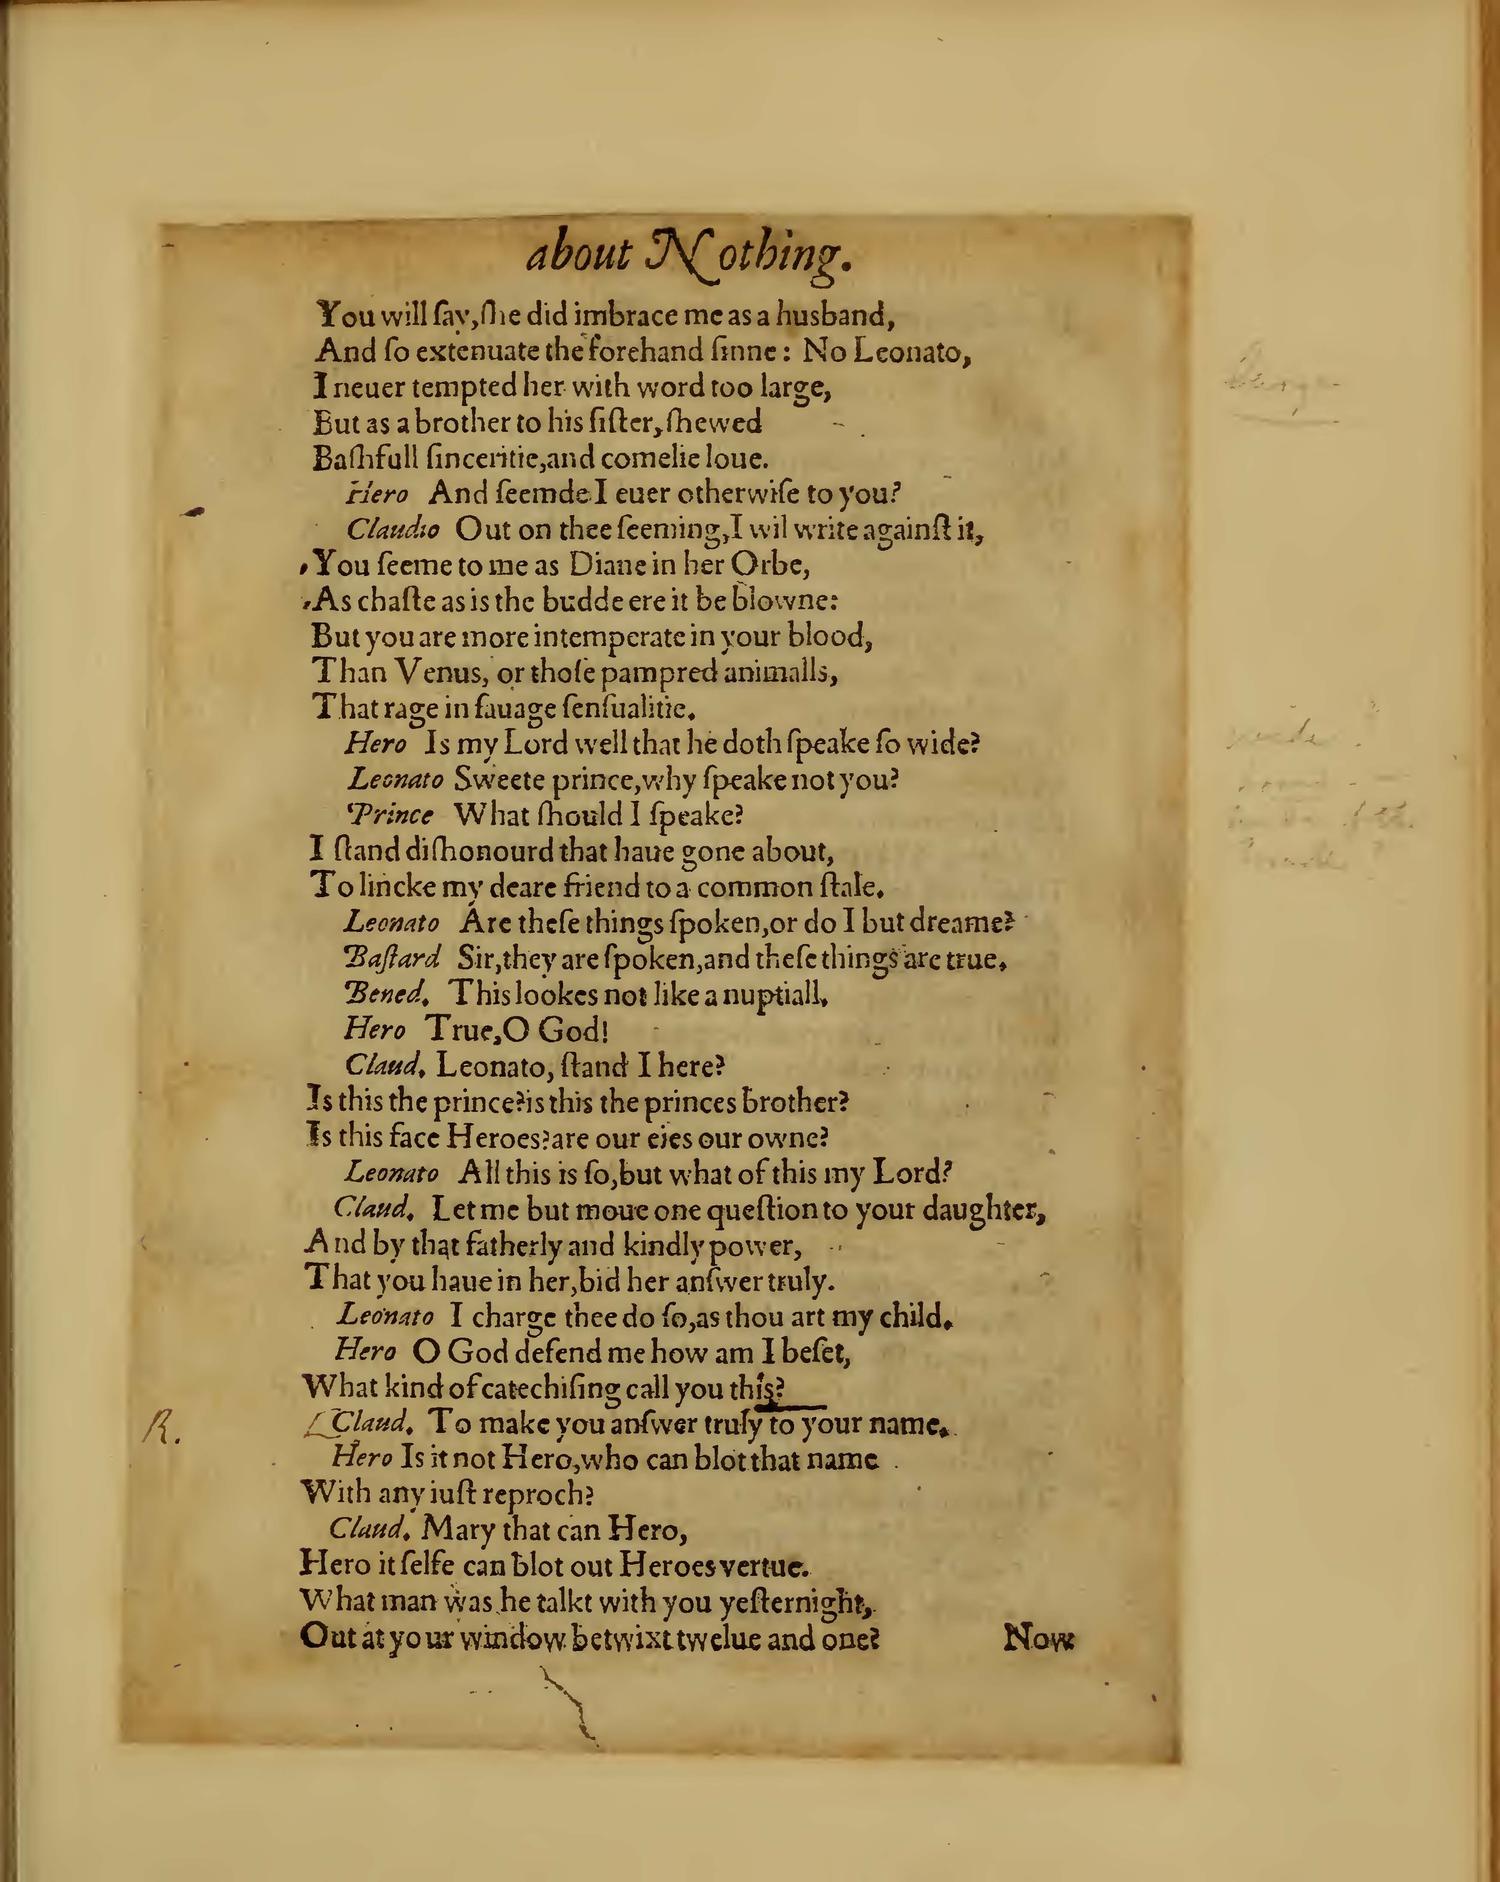 about Nothing.
You will ſay, ſhe did imbrace me as a husband,
And ſo extenuate the forehand ſinne: No Leonato,
I neuer tempted her with word too large,
But as a brother to his ſiſter, ſhewed
Baſhfull ſinceritie, and comelie loue.
Hero And ſeemde I euer otherwiſe to you?
Claudio Out on thee ſeeming, I wil write againſt it,
You ſeeme to me as Diane in her Orbe,
As chaſte as is the budde ere it be blowne:
But you are more intemperate in your blood,
Than Venus, or thoſe pampred animalls,
That rage in ſauage ſenſualitie.
Hero Is my Lord well that he doth ſpeake ſo wide?
Leonato Sweete prince, why ſpeake not you?
Prince What ſhould I ſpeake?
I ſtand diſhonourd that haue gone about,
To lincke my deare friend to a common ſtale.
Leonato Are theſe things ſpoken, or do I but dreame?
Baſtard Sir, they are ſpoken, and theſe things are true.
Bened. This lookes not like a nuptiall.
Hero True, O God!
Claud. Leonato, ſtand I here?
Is this the prince? is this the princes brother?
Is this face Heroes? are our eies our owne?
Leonato All this is ſo, but what of this my Lord?
Claud. Let me but moue one queſtion to your daughter,
And by that fatherly and kindly power,
That you haue in her, bid her anſwer truly.
Leonato I charge thee do ſo, as thou art my child.
Hero O God defend me how am I beſet,
What kind of catechiſing call you this?
R. Claud. To make you anſwer truly to your name.
Hero Is it not Hero, who can blot that name
With any iuſt reproch?
Claud. Mary that can Hero,
Hero it ſelfe can blot out Heroes vertue.
What man was he talkt with you yeſternight,
Out at your window betwixt twelue and one?
Now